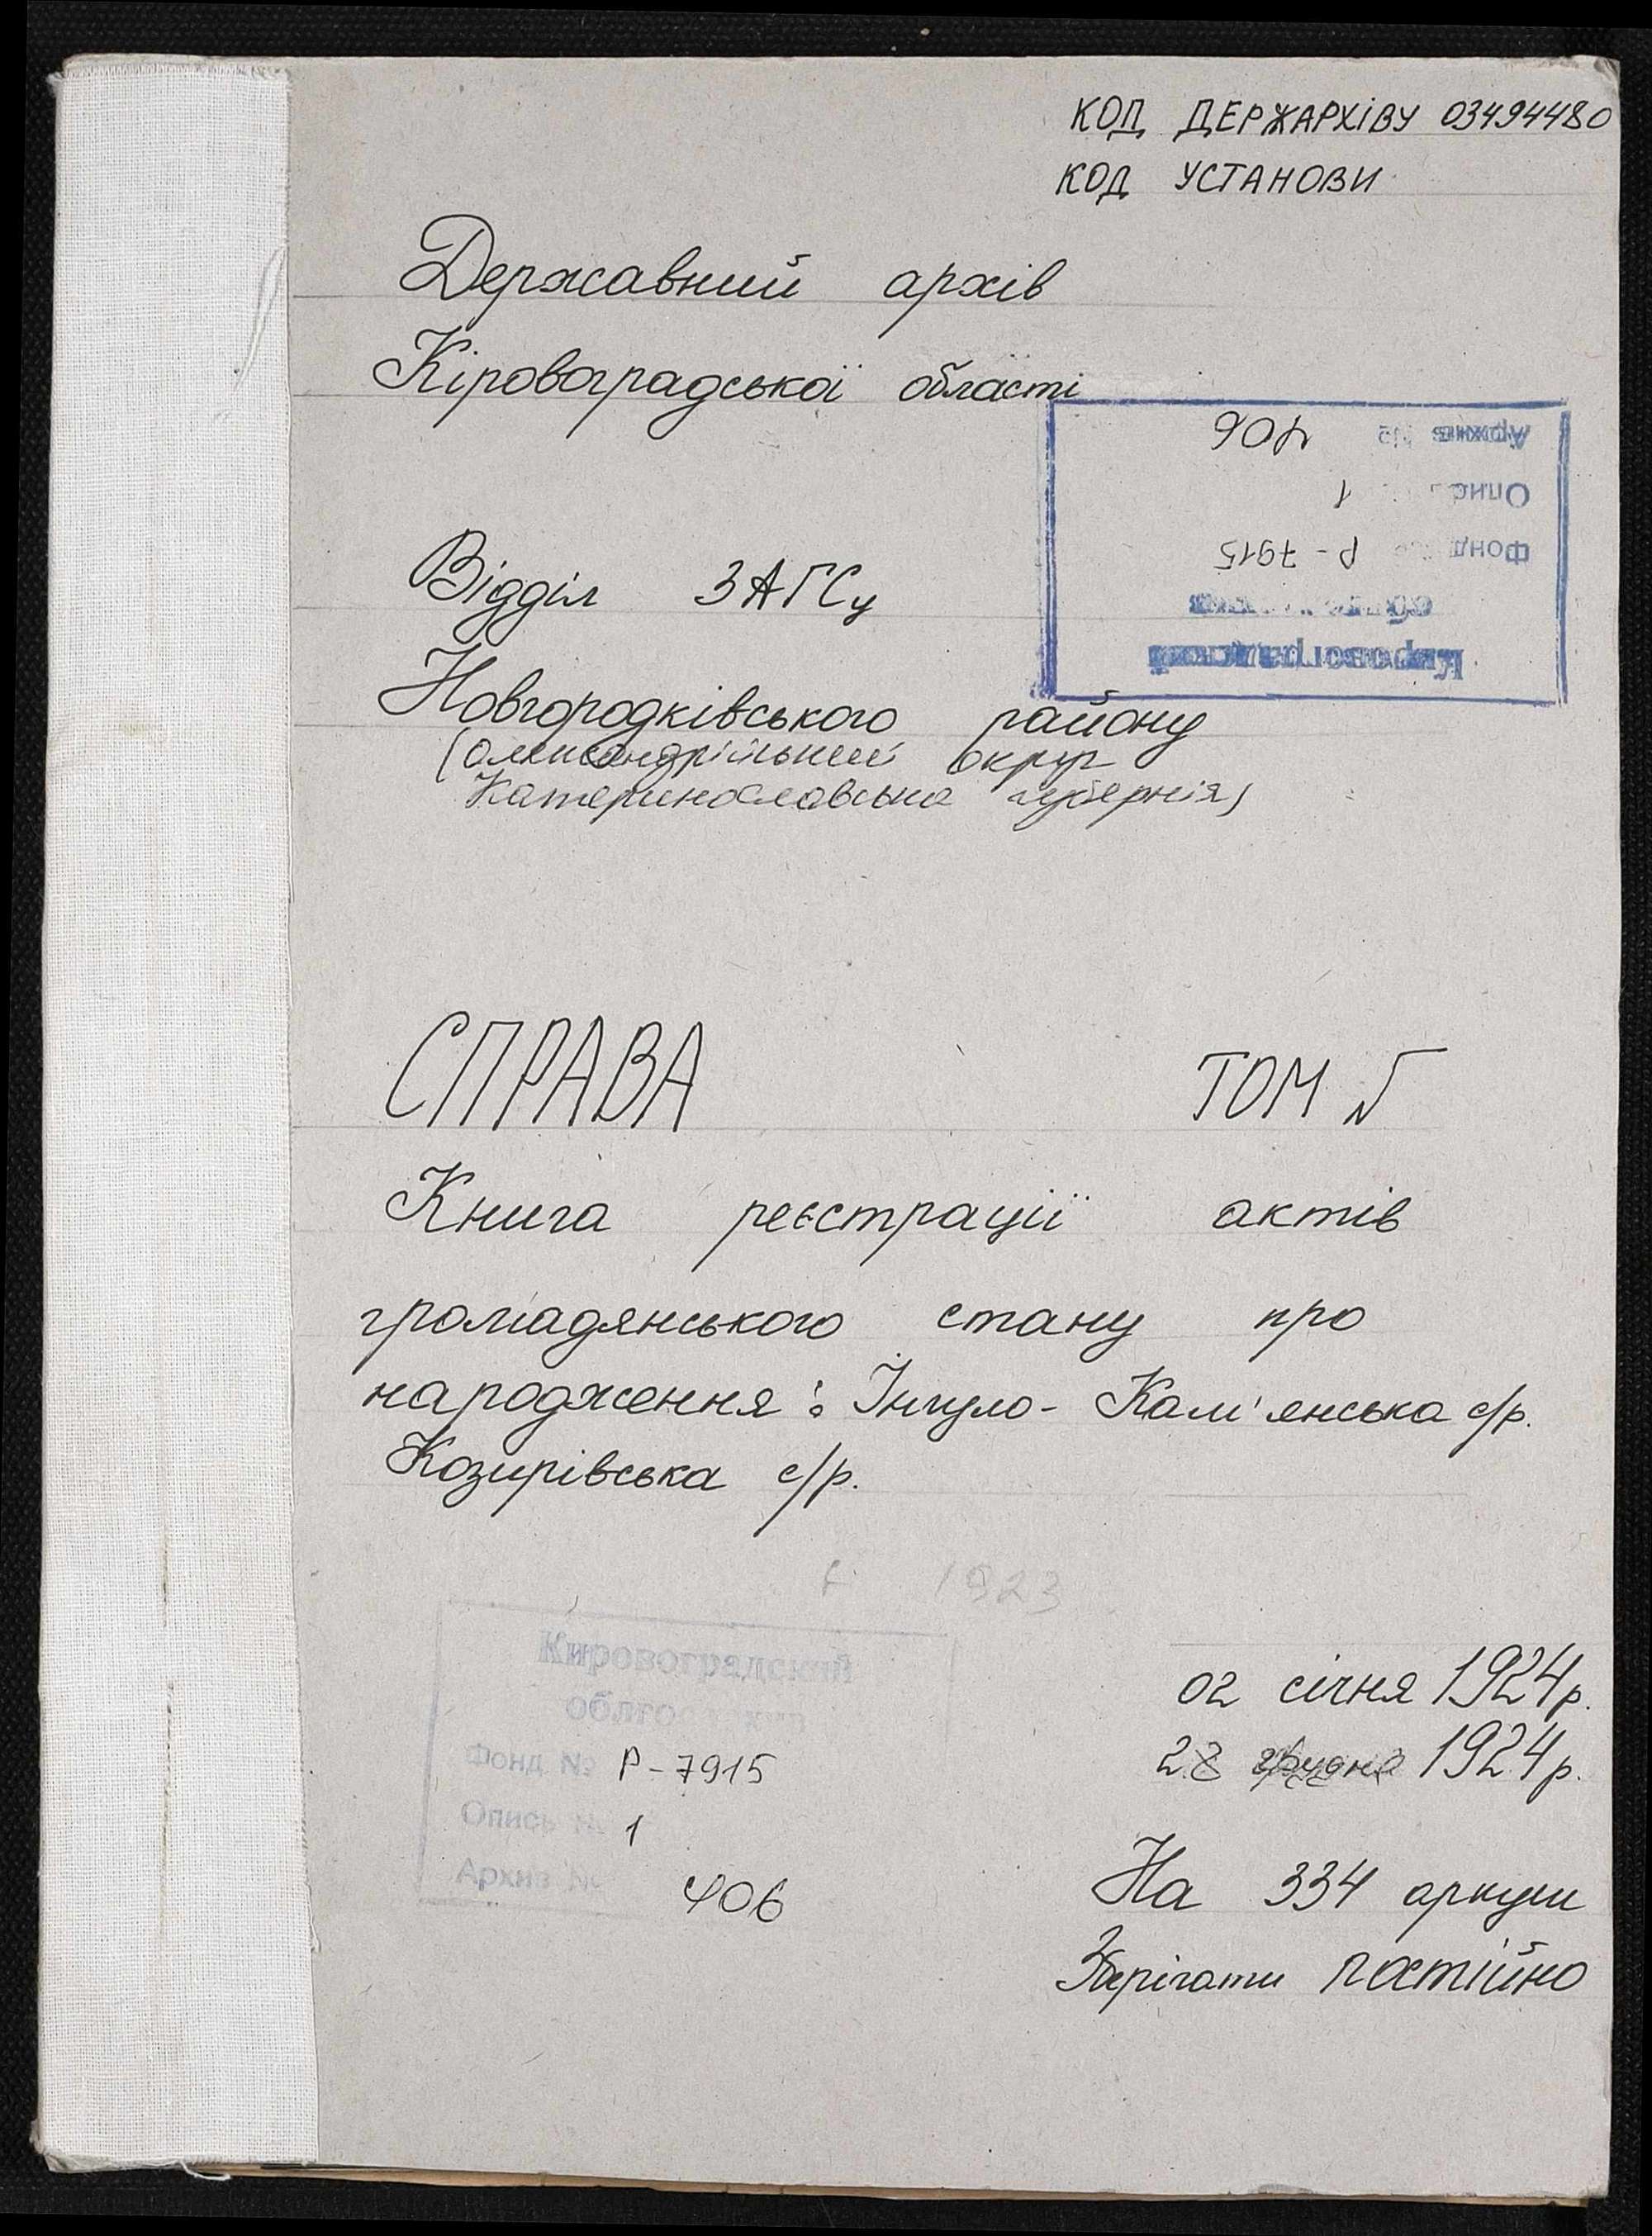 КОД ДЕРЖАРХІВУ 03494480
КОД УСТАНОВИ
Державний архів
Кіровоградської області
Архив № 406
Опись № 1
Фонд № Р-7915
Кировоградский
Відділ ЗАГСу
Новгородківського району
(Олександрійський округ
Катеринославська губернія)
СПРАВА ТОМ
Книга реєстрації актів
громадянського стану про
народження: Інгуло-Кам'янська с/р.
Козирівська с/р.
1923
Кировоградский
02 січня 1924р.
28 грудня 1924р.
Фонд № Р-7915
Опись № 1
Архив № 406
На 334 аркуши
Зберігати постійно